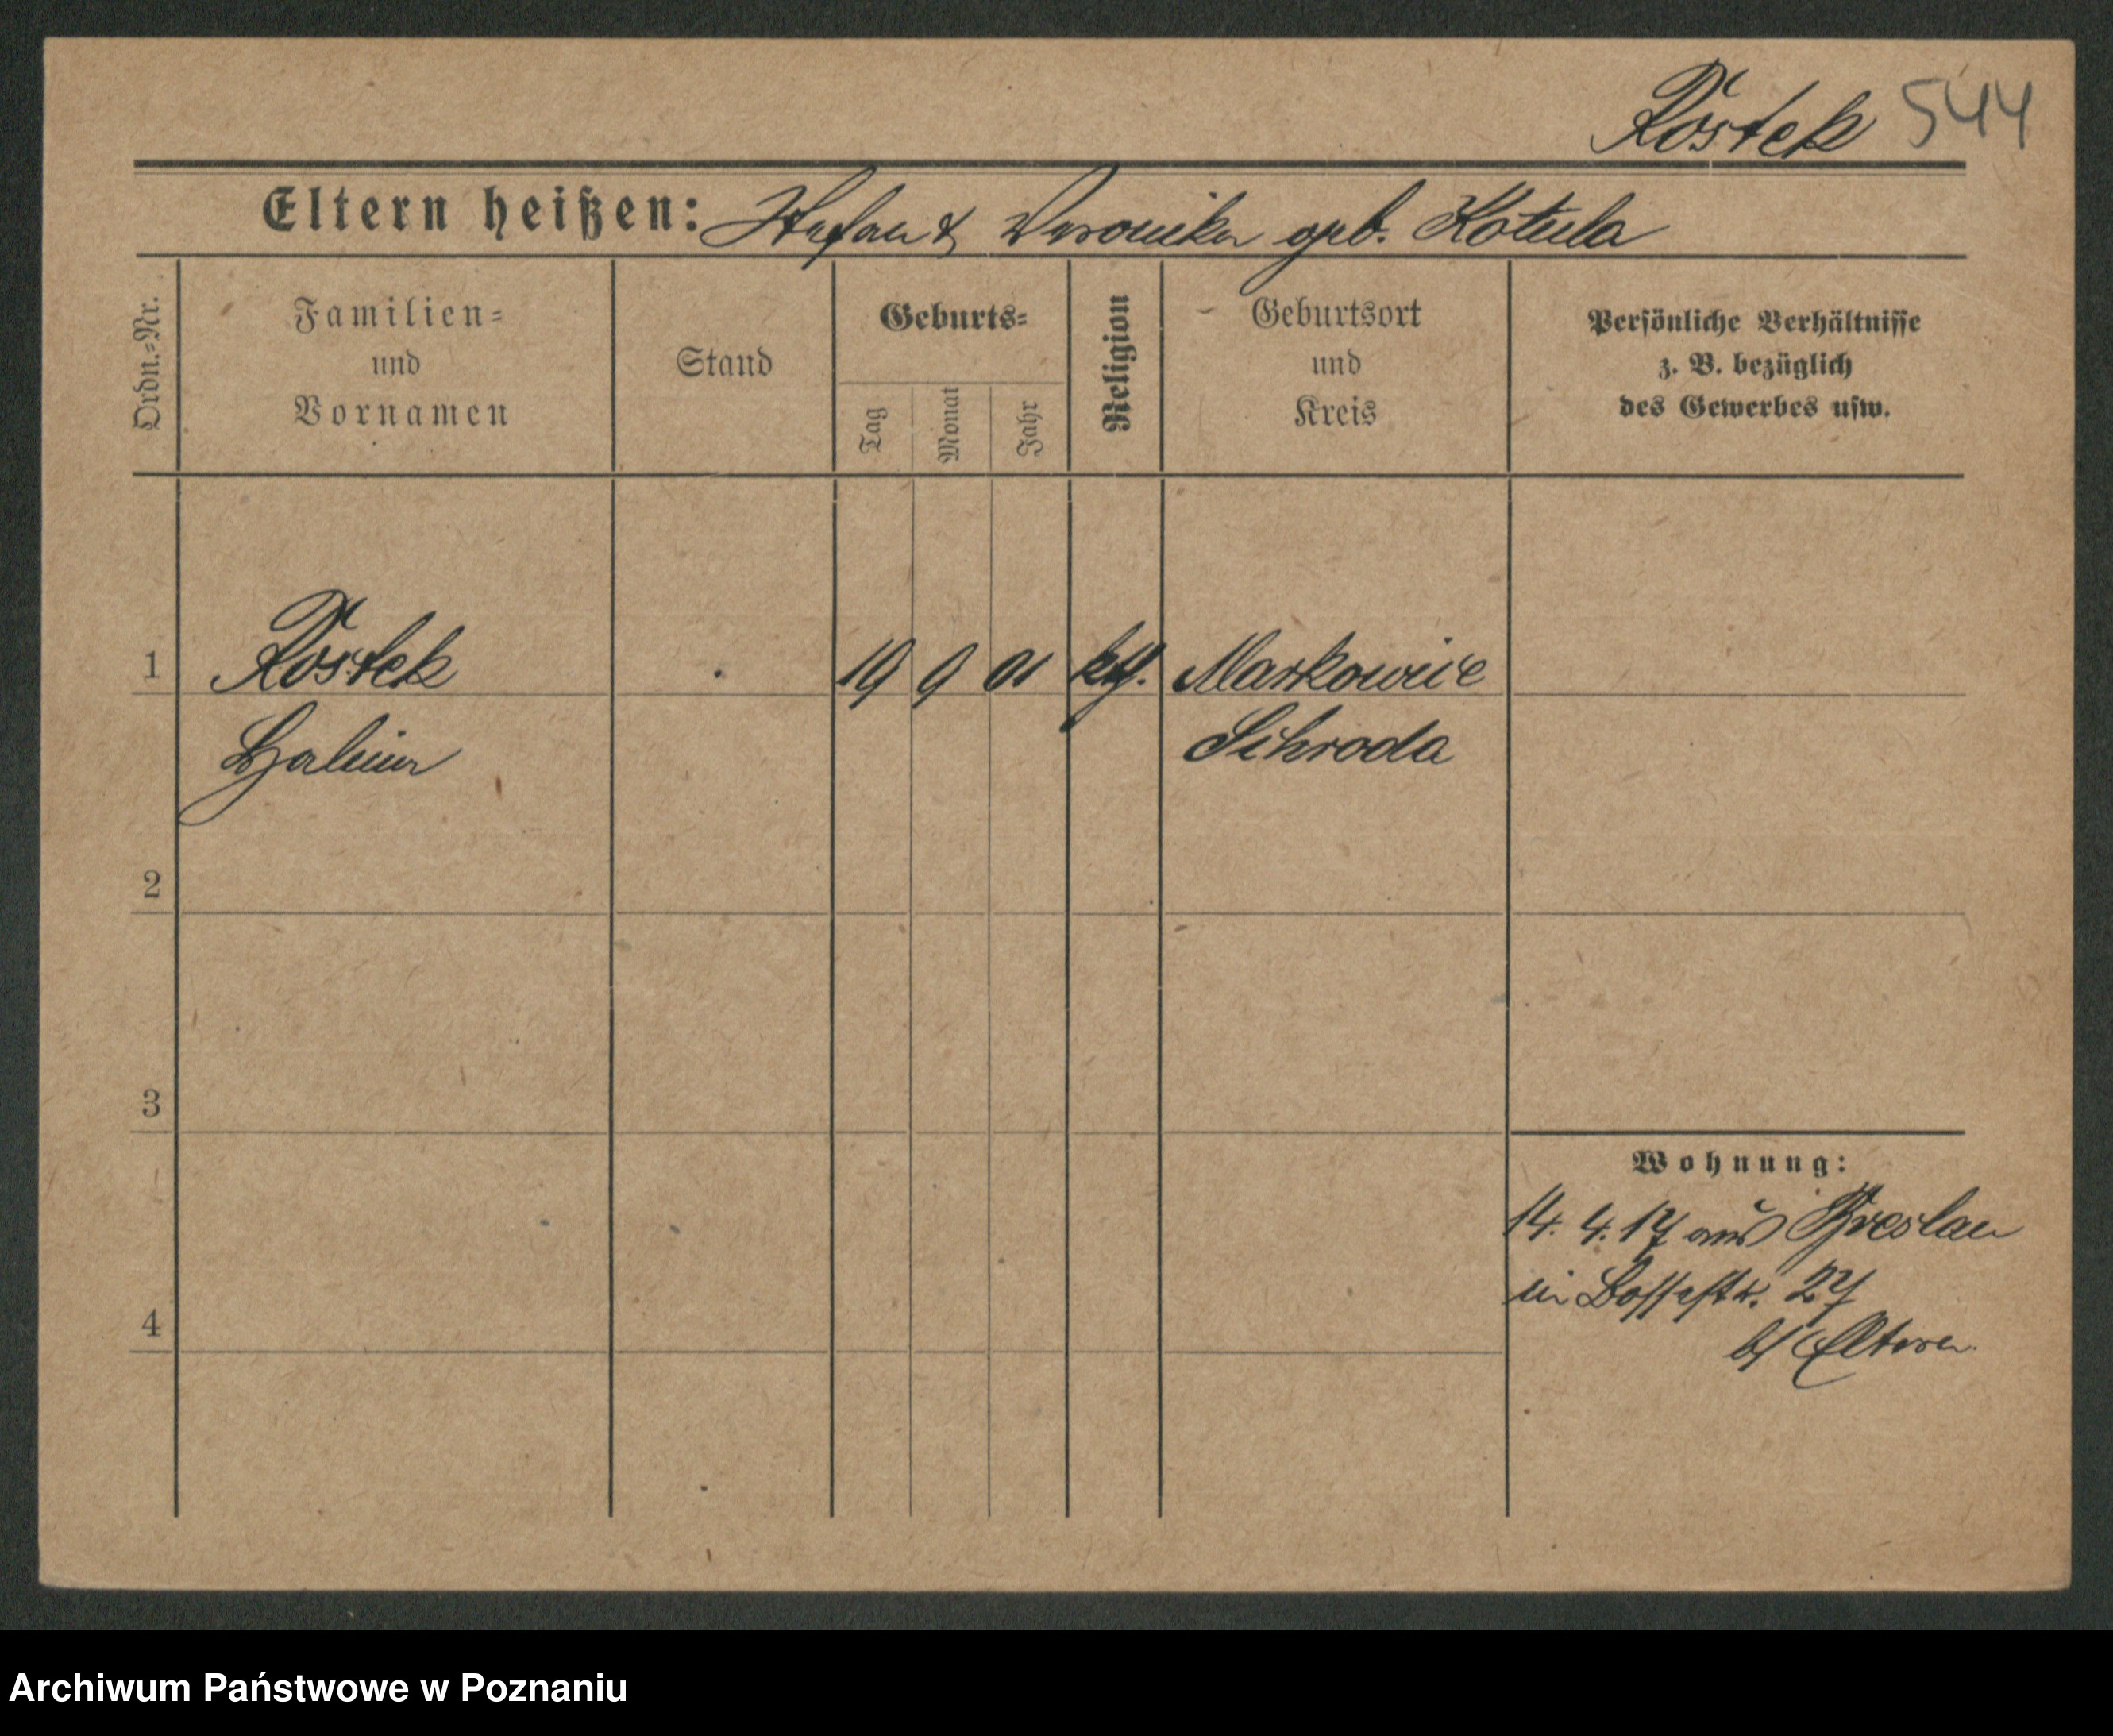 Kostek 544
Eltern heißen: Stefan & Veronika geb. Kotula
Ordn.-Nr.
Familien-
und
Vornamen
Stand
Geburts-
Tag
Monat
Jahr
Religion
Geburtsort
und
Kreis
Persönliche Verhältnisse
z. B. bezüglich
des Gewerbes usw.
1 Kostek 19 9 01 kth. Markowice
Halina Schroda
2
3
4
Wohnung:
14. 4. 17 aus Breslau
in 27
b/ Eltern
Archiwum Państwowe w Poznaniu